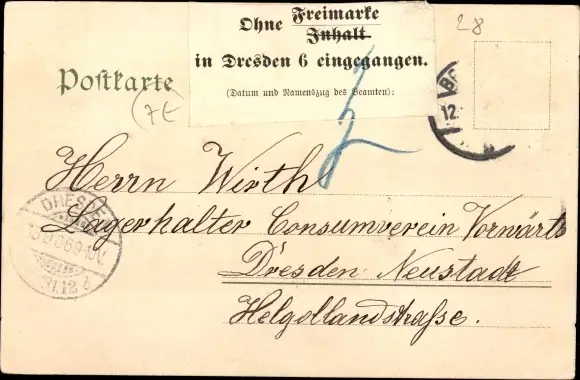 28
Ohne Freimarke
Inhalt
in Dresden 6 eingegangen.
(Datum und Namenszug des Beamten):
Postkarte
7E
12
Herrn Wirth
Lagerhalter Consumverein Vorwärts
Dresden Neustadt
Helgollandstraße.
DRESDEN